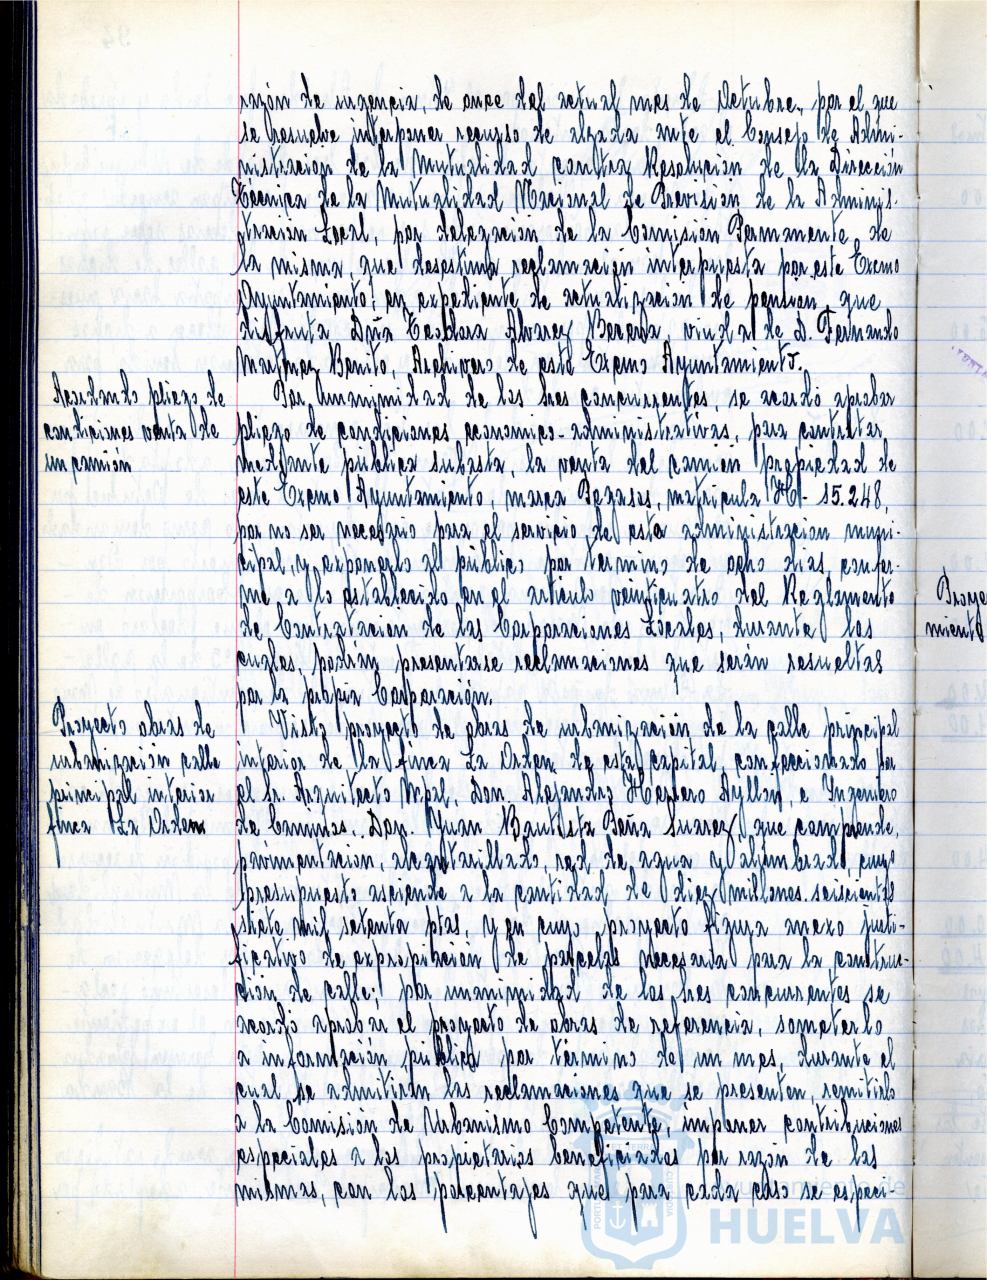 razón de urgencia, de once del actual mes de Octubre, por el que
se resuelve interponer recurso de alzada ante el Consejo de Admi-
nistración de la Mutualidad contra Resolución de la Dirección
Técnica de la Mutualidad Nacional de Previsión de la Adminis-
tración Local, por delegación de la Comisión Permanente de
la misma, que desestima reclamación interpuesta por este Excmo
Ayuntamiento en expediente de actualización de pensión, que
disfruta Dña Alvarez Becerra viuda de D. Fernando
Martínez Benito, Archivero de este Excmo Ayuntamiento.
Acordando pliego de
condiciones venta de
un camión
Por unanimidad de los tres concurrentes, se acordó aprobar
pliego de condiciones economico-administrativas, para contratar
mediante pública subasta la venta del camión propiedad de
este Excmo Ayuntamiento marca Pegaso, matricula H- 15.248,
por no ser necesario para el servicio de esta administración muni-
cipal, y exponerlo al público por termino de ocho dias, confor-
me a lo establecido en el artículo veinticuatro del Reglamento
de Contratación de las Corporaciones Locales, durante los
cuales, podrán presentarse reclamaciones que serán resueltas
por la propia Corporación.
Proyecto obras de
urbanización calle
principal interior
finca La Orden
Visto proyecto de obras de urbanización de la calle principal
interior de la finca La Orden, de esta capital, confeccionado por
el Sr. Arquitecto Mpal, Don Alejandro Herrero Ayllón, e Ingeniero
de Caminos, Don Juan Bautista Peña Suarez, que comprende,
pavimentacion, alcantarillado, red de agua y alumbrado, cuyo
presupuesto asciende a la cantidad de diez millones seiscientas
siete mil setenta ptas, y en cuyo proyecto figura anexo justi-
ficativo de expropiación de parcelas necesaria para la construc-
ción de calle; por unanimidad de los tres concurrentes se
acordó aprobar el proyecto de obras de referencia, someterlo
a información pública por término de un mes, durante el
cual se admitirán las reclamaciones que se presenten, remitirlo
a la Comisión de Urbanismo Competente, imponer contribuciones
especiales a los propietarios beneficiados por razón de las
mismas, con los porcentajes que para cada caso se especi-
Proye
miento
Ayuntamiento de
HUELVA